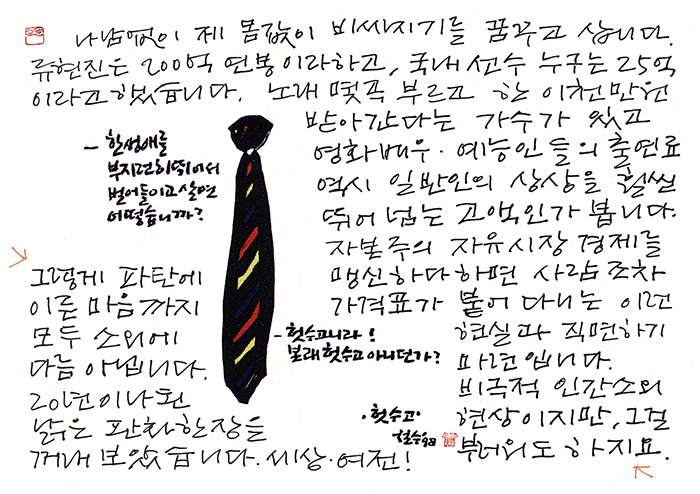 나남없이 제 몸값이 비싸지기를 꿈꾸고 삽니다.
류현진은 200억 연봉이라하고, 국내선수 누구는 25억
이라고 했습니다. 노래 몇곡 부르고 한 이천만원
받아간다는 가수가 있고
영화배우·예능인들의 출연료
역시 일반인의 상상을 훨씬
뛰어 넘는 고액인가 봅니다.
자본주의 자유시장 경제를
맹신하다하면 사람조차
가격표가 붙어 다니는 이런
현실과 직면하기
마련입니다.
비극적 인간소외
현상이지만, 그걸
부러워도 하지요.
그렇게 파탄에
이른 마음까지
모두 소외에
다름 아닙니다.
20년이나 된
낡은 판화한장을
꺼내 보았습니다. 세상·여전!
- 한생애를
부지런히뛰어서
벌어들이고살면
어떻습니까?
- 헛수고니라!
본래헛수고아니던가?
·헛수고·
철수98